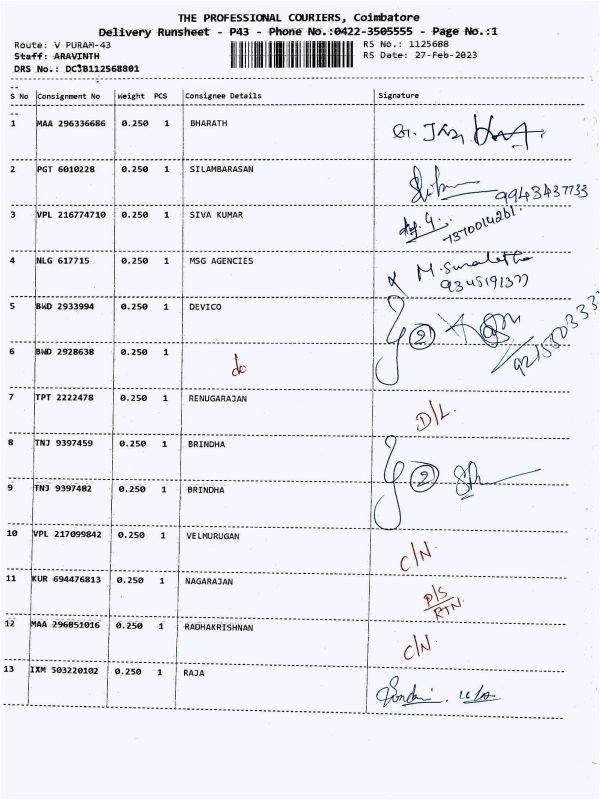 THE PROFESSIONAL COURIERS, Coimbatore
Delivery Runsheet - P43 - Phone No.:0422-3505555 - Page No.:1
Route: V PURAM-43 RS No.: 1125688
Staff: ARAVINTH RS Date: 27-Feb-2023
DRS No.: DC3B112568801
S No Consignment No Weight PCS Consignee Details Signature
1 MAA 296336686 0.250 1 BHARATH
2 PGT 6010228 0.250 1 SILAMBARASAN
9943437733
3 VPL 216774710 0.250 1 SIVA KUMAR
7370014261
4 NLG 617715 0.250 1 MSG AGENCIES
9345191377
5 BWD 2933994 0.250 1 DEVICO 2
6 BWD 2928638 0.250 1 do
7 TPT 2222478 0.250 1 RENUGARAJAN D/L
8 TNJ 9397459 0.250 1 BRINDHA 2
9 TNJ 9397482 0.250 1 BRINDHA
10 VPL 217099842 0.250 1 VELMURUGAN C/N
11 KUR 694476813 0.250 1 NAGARAJAN D/S
RTN
12 MAA 296851016 0.250 1 RADHAKRISHNAN C/N
13 IXM 503220102 0.250 1 RAJA